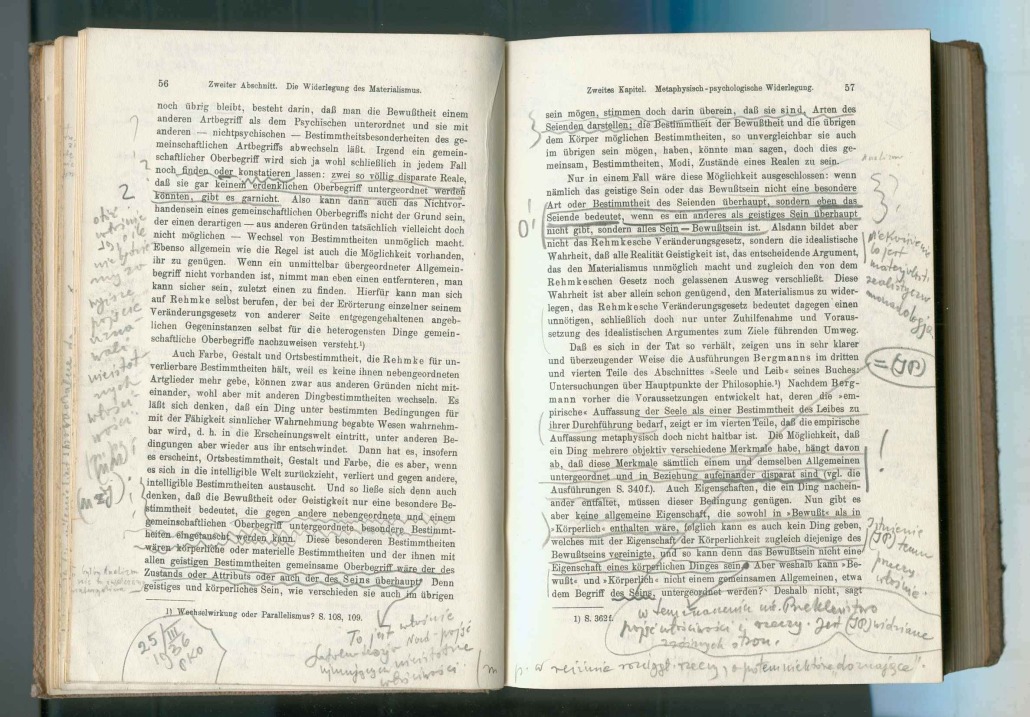 56 Zweiter Abschnitt. Die Widerlegung des Materialismus.
noch übrig bleibt, besteht darin, daß man die Bewußtheit einem
anderen Artbegriff als dem Psychischen unterordnet und sie mit
anderen — nichtpsychischen — Bestimmtheitsbesonderheiten des ge-
meinschaftlichen Artbegriffs abwechseln läßt. Irgend ein gemein-
schaftlicher Oberbegriff wird sich ja wohl schließlich in jedem Fall
noch finden oder konstatieren lassen: zwei so völlig disparate Reale,
daß sie gar keinem erdenklichen Oberbegriff untergeordnet werden
könnten, gibt es garnicht. Also kann dann auch das Nichtvor-
handensein eines gemeinschaftlichen Oberbegriffs nicht der Grund sein,
der einen derartigen — aus anderen Gründen tatsächlich vielleicht doch
nicht möglichen — Wechsel von Bestimmtheiten unmöglich macht.
Ebenso allgemein wie die Regel ist auch die Möglichkeit vorhanden,
ihr zu genügen. Wenn ein unmittelbar übergeordneter Allgemein-
begriff nicht vorhanden ist, nimmt man eben einen entfernteren, man
kann sicher sein, zuletzt einen zu finden. Hierfür kann man sich
auf Rehmke selbst berufen, der bei der Erörterung einzelner seinem
Veränderungsgesetz von anderer Seite entgegengehaltenen angeb-
lichen Gegeninstanzen selbst für die heterogensten Dinge gemein-
schaftliche Oberbegriffe nachzuweisen versteht.¹)
Auch Farbe, Gestalt und Ortsbestimmtheit, die Rehmke für un-
verlierbare Bestimmtheiten hält, weil es keine ihnen nebengeordneten
Artglieder mehr gebe, können zwar aus anderen Gründen nicht mit-
einander, wohl aber mit anderen Dingbestimmtheiten wechseln. Es
läßt sich denken, daß ein Ding unter bestimmten Bedingungen für
mit der Fähigkeit sinnlicher Wahrnehmung begabte Wesen wahrnehm-
bar wird, d. h. in die Erscheinungswelt eintritt, unter anderen Be-
dingungen aber wieder aus ihr entschwindet. Dann hat es, insofern
es erscheint, Ortsbestimmtheit, Gestalt und Farbe, die es aber, wenn
es sich in die intelligible Welt zurückzieht, verliert und gegen andere,
intelligible Bestimmtheiten austauscht. Und so ließe sich denn auch
denken, daß die Bewußtheit oder Geistigkeit nur eine besondere Be-
stimmtheit bedeutet, die gegen andere nebengeordnete und einem
gemeinschaftlichen Oberbegriff untergeordnete besondere Bestimmt-
heiten eingetauscht werden kann. Diese besonderen Bestimmtheiten
wären körperliche oder materielle Bestimmtheiten und der ihnen mit
allen geistigen Bestimmtheiten gemeinsame Oberbegriff wäre der des
Zustands oder Attributs oder auch der des Seins überhaupt. Denn
geistiges und körperliches Sein, wie verschieden sie auch im übrigen
1) Wechselwirkung oder Parallelismus? S. 108, 109.
25/III
1936
PKO
To jest właśnie
Zweites Kapitel. Metaphysisch-psychologische Widerlegung. 57
sein mögen, stimmen doch darin überein, daß sie sind, Arten des
Seienden darstellen; die Bestimmtheit der Bewußtheit und die übrigen
dem Körper möglichen Bestimmtheiten, so unvergleichbar sie auch
im übrigen sein mögen, haben, könnte man sagen, doch dies ge-
meinsam, Bestimmtheiten, Modi, Zustände eines Realen zu sein.
Nur in einem Fall wäre diese Möglichkeit ausgeschlossen: wenn
nämlich das geistige Sein oder das Bewußtsein nicht eine besondere
Art oder Bestimmtheit des Seienden überhaupt, sondern eben das
Seiende bedeutet, wenn es ein anderes als geistiges Sein überhaupt
nicht gibt, sondern alles Sein — Bewußtsein ist. Alsdann bildet aber
nicht das Rehmkesche Veränderungsgesetz, sondern die idealistische
Wahrheit, daß alle Realität Geistigkeit ist, das entscheidende Argument,
das den Materialismus unmöglich macht und zugleich den von dem
Rehmkeschen Gesetz noch gelassenen Ausweg verschließt. Diese
Wahrheit ist aber allein schon genügend, den Materialismus zu wider-
legen, das Rehmkesche Veränderungsgesetz bedeutet dagegen einen
unnötigen, schließlich doch nur unter Zuhilfenahme und Voraus-
setzung des idealistischen Argumentes zum Ziele führenden Umweg.
Daß es sich in der Tat so verhält, zeigen uns in sehr klarer
und überzeugender Weise die Ausführungen Bergmanns im dritten
und vierten Teile des Abschnittes »Seele und Leib« seines Buches:
Untersuchungen über Hauptpunkte der Philosophie.¹) Nachdem Berg-
mann vorher die Voraussetzungen entwickelt hat, deren die »em-
pirische« Auffassung der Seele als einer Bestimmtheit des Leibes zu
ihrer Durchführung bedarf, zeigt er im vierten Teile, daß die empirische
Auffassung metaphysisch doch nicht haltbar ist. Die Möglichkeit, daß
ein Ding mehrere objektiv verschiedene Merkmale habe, hängt davon
ab, daß diese Merkmale sämtlich einem und demselben Allgemeinen
untergeordnet und in Beziehung aufeinander disparat sind (vgl. die
Ausführungen S. 340f.). Auch Eigenschaften, die ein Ding nachein-
ander entfaltet, müssen dieser Bedingung genügen. Nun gibt es
aber keine allgemeine Eigenschaft, die sowohl in »Bewußt« als in
»Körperlich« enthalten wäre, folglich kann es auch kein Ding geben,
welches mit der Eigenschaft der Körperlichkeit zugleich diejenige des
Bewußtseins vereinigte, und so kann denn das Bewußtsein nicht eine
Eigenschaft eines körperlichen Dinges sein. Aber weshalb kann »Be-
wußt« und »Körperlich« nicht einem gemeinsamen Allgemeinen, etwa
dem Begriff des Seins, untergeordnet werden? Deshalb nicht, sagt
1) S. 362f.